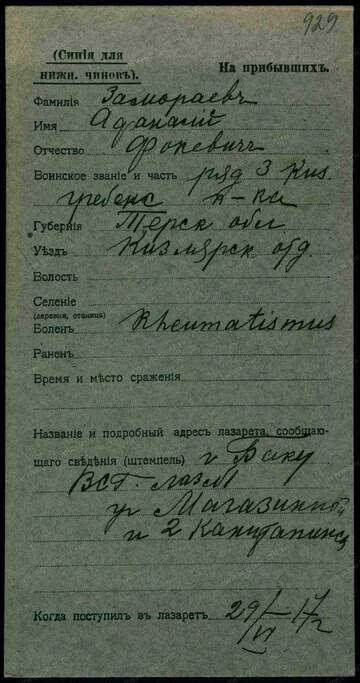 929.
(Синія для
нижн. чиновъ).
На прибывшихъ.
Фамилія Замораевъ
Имя Афанасій
Отчество Фокевичъ
Воинское званіе и часть ряд 3 Киз.
гребенс к-ка
Губернія Терск обл
Уѣздъ Кизлярск отд.
Волость
Селеніе
(деревня, станица)
Боленъ Rheumatismus
Раненъ
Время и мѣсто сраженія
Названіе и подробный адресъ лазарета, сообщаю-
щаго свѣдѣнія (штемпель) г Баку
ВСГ. лаз
уг Магазинной
и 2 Канитапинск
Когда поступилъ въ лазаретъ 29/VI—17 г